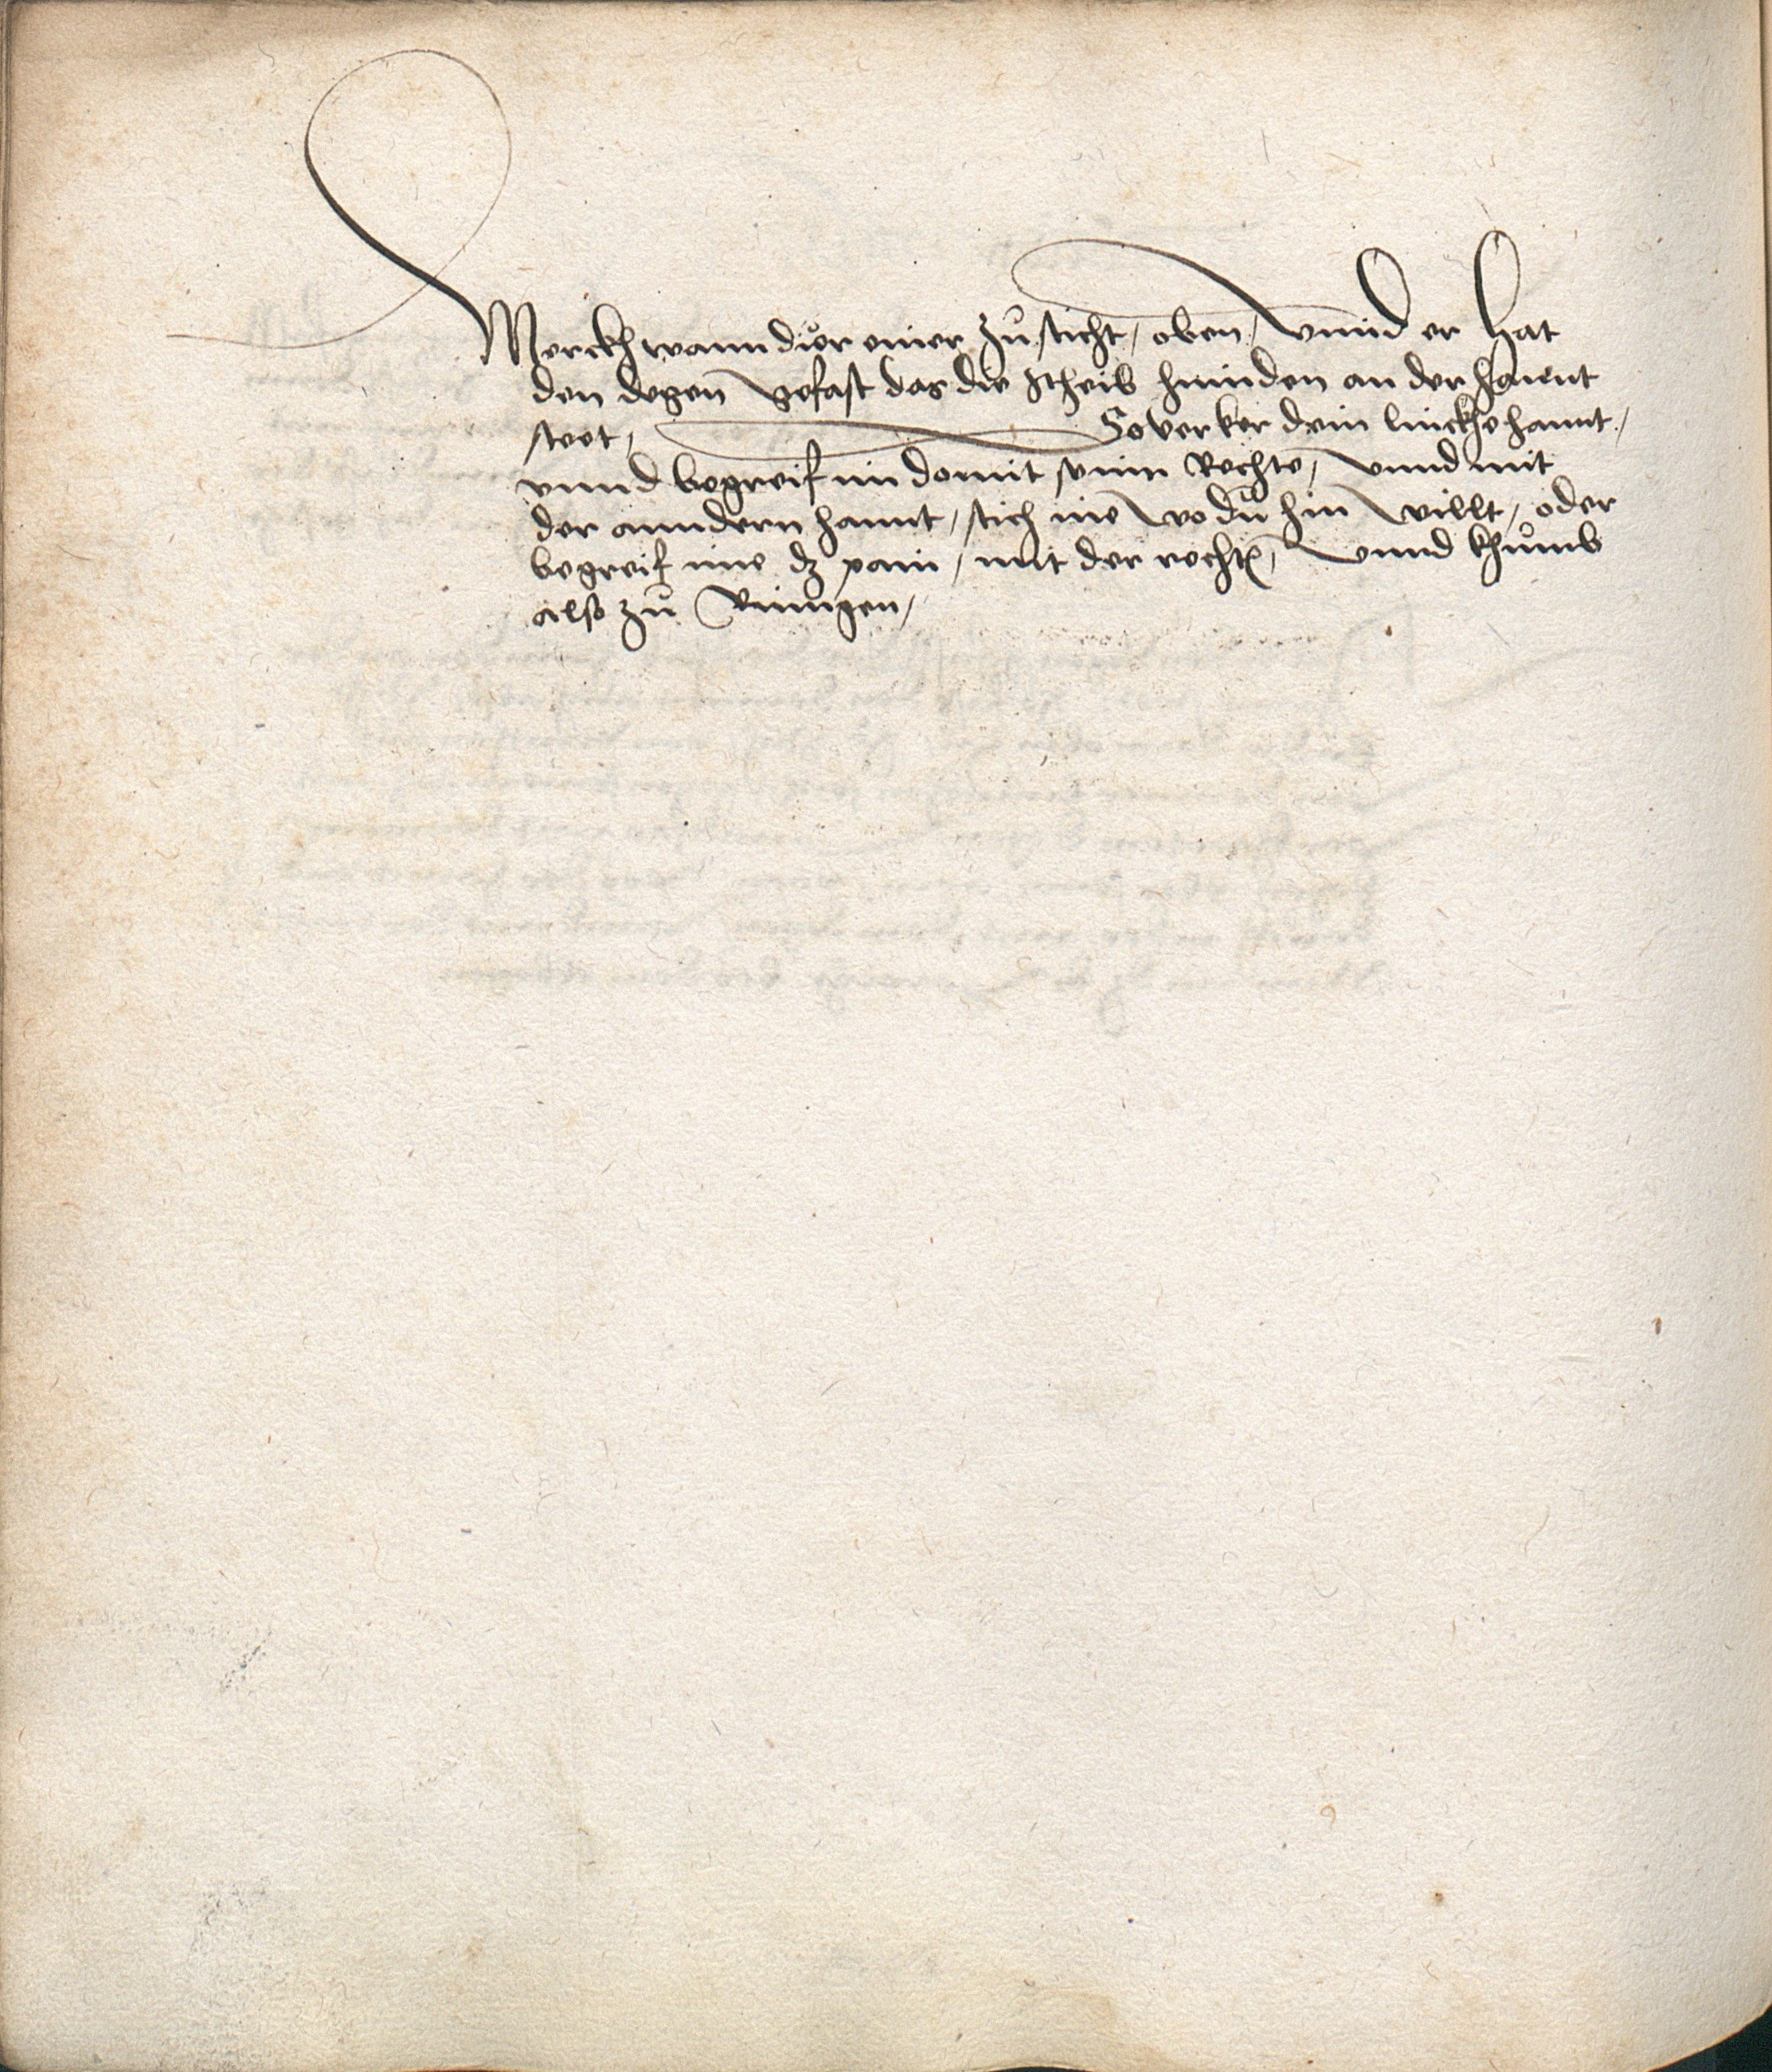 Merckh wann dier einer zů sticht / oben / vnnd er hat
den degen gefast das die scheib hinnden an der hannt
steet / So verker dein linckhe hannt /
vnnd begreif im domit seinn Rechte / vnnd mit
der anndern hannt / stich ime wo dŭ hin willt / oder
begreif ime dz pain / mit der rechtn / vnnd khŭmb
also zŭ Rinngen /